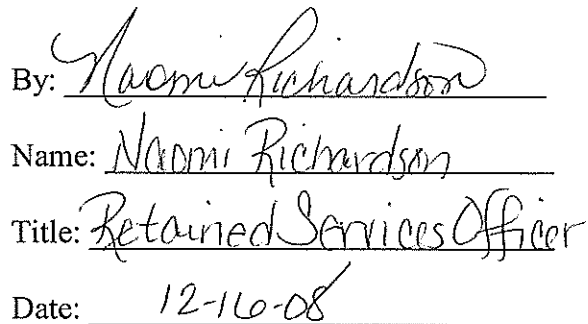 By: Naomi Richardson
Name: Naomi Richardson
Title: Retained Services Officer
Date: 12-16-08